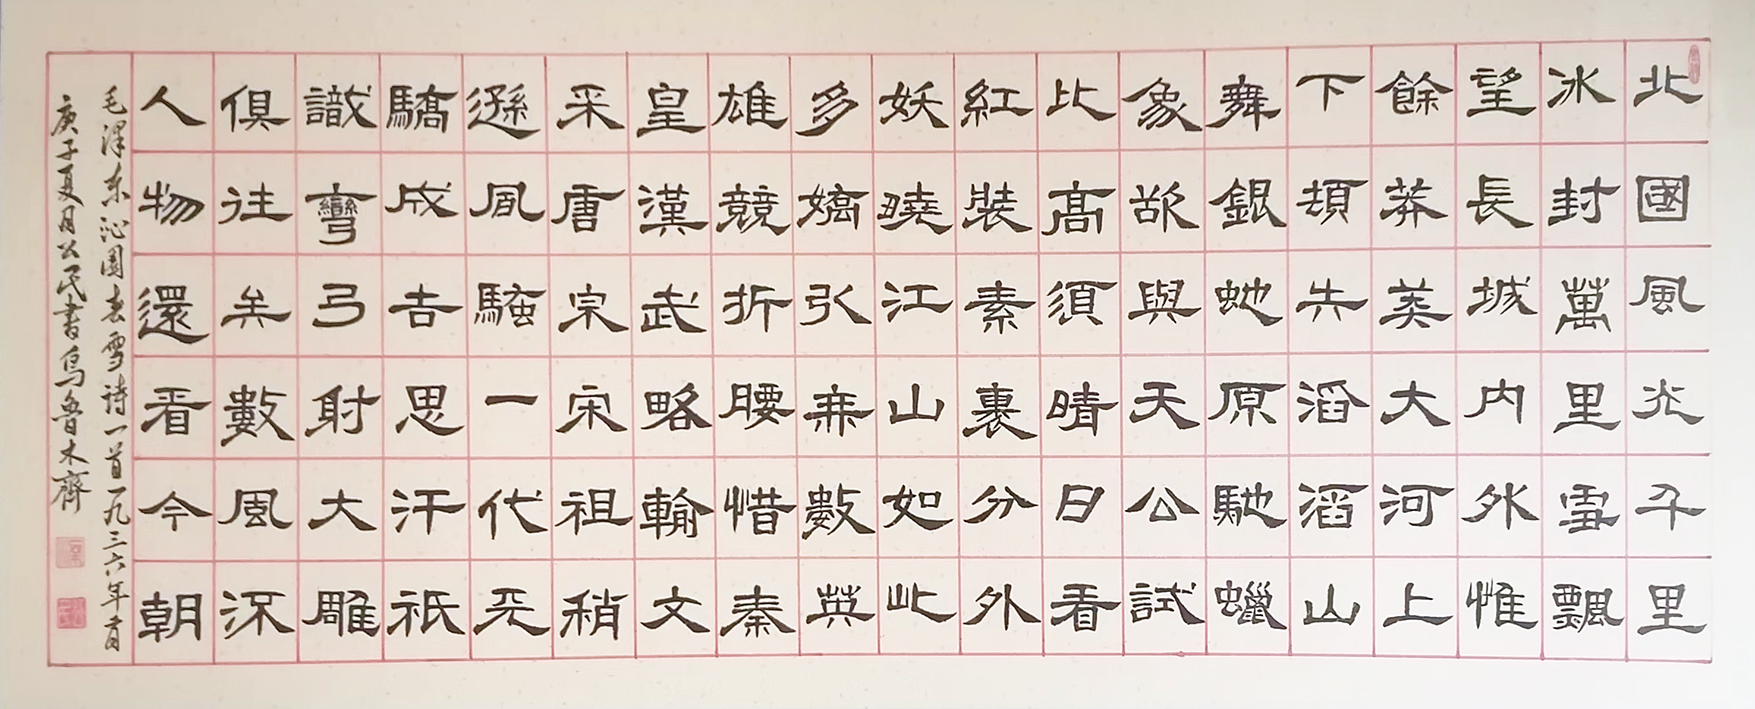 北國風光千里
冰封萬里雪飄
望長城内外惟
餘莽莽大河上
下頓失滔滔山
舞銀虵原馳蠟
象欲與天公試
比高須晴日看
紅裝素裹分外
妖曉江山如此
多嬌引無數英
雄競折腰惜秦
皇漢武略輸文
采唐宗宋祖稍
遜風騷一代天
驕成吉思汗祇
識彎弓射大雕
俱往矣數風流
人物還看今朝
毛澤东沁園春雪詩一首一九三六年二月
庚子夏月公民書烏魯木齊